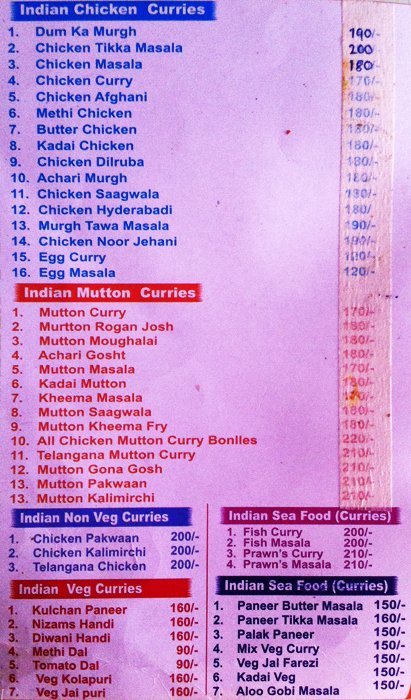 Indian Chicken Curries
1. Dum Ka Murgh 190/-
2. Chicken Tikka Masala 200
3. Chicken Masala 180/-
4. Chicken Curry 170/-
5. Chicken Afghani 180/-
6. Methi Chicken 180/-
7. Butter Chicken 180/-
8. Kadai Chicken 180/-
9. Chicken Dilruba 180/-
10. Achari Murgh 180/-
11. Chicken Saagwala 180/-
12. Chicken Hyderabadi 180/
13. Murgh Tawa Masala 190/-
14. Chicken Noor Jehani 190/-
15. Egg Curry
16. Egg Masala 120/-
Indian Mutton Curries
1. Mutton Curry 170/-
2. Murtton Rogan Josh 180/-
3. Mutton Moughalai 180/-
4. Achari Gosht 180/-
5. Mutton Masala 170/-
6. Kadai Mutton 180/-
7. Kheema Masala
8. Mutton Saagwala 180/-
9. Mutton Kheema Fry 180/-
10. All Chicken Mutton Curry Bonlles 220/-
11. Telangana Mutton Curry 210/-
12. Mutton Gona Gosh 210/-
13. Mutton Pakwaan 210/-
13. Mutton Kalimirchi 210/-
Indian Non Veg Curries
1. Chicken Pakwaan 200/-
2. Chicken Kalimirchi 200/-
3. Telangana Chicken 200/-
Indian Sea Food (Curries)
1. Fish Curry 200/-
2. Fish Masala 200/-
3. Prawn's Curry 210/-
4. Prawn's Masala 210/-
Indian Veg Curries
1. Kulchan Paneer 160/-
2. Nizams Handi 160/-
3. Diwani Handi 160/-
4. Methi Dal 90/-
5. Tomato Dal 90/-
6. Veg Kolapuri 160/-
7. Veg Jai puri 160/-
Indian Sea Food (Curries)
1. Paneer Butter Masala 150/-
2. Paneer Tikka Masala 160/-
3. Palak Paneer 150/-
4. Mix Veg Curry 150/-
5. Veg Jal Farezi 150/-
6. Kadai Veg 150/-
7. Aloo Gobi Masala 150/-